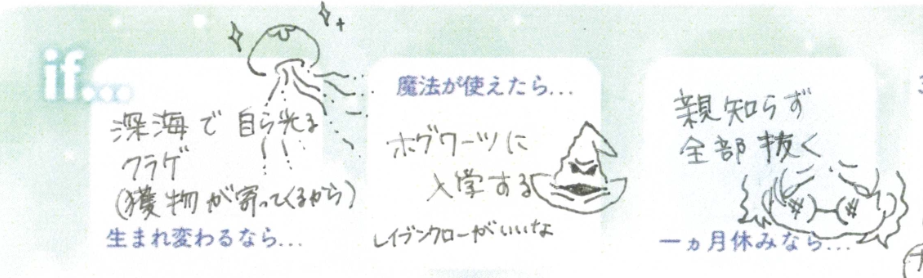 if...
深海で自ら光る
クラゲ
(獲物が寄ってくるから)
生まれ変わるなら...
魔法が使えたら...
ホグワーツに
入学する
レイブンクローがいいな
親知らず
全部抜く
一ヵ月休みなら...